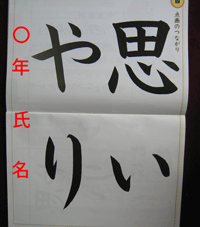 点画のつながり
思い
やり
〇年 氏名